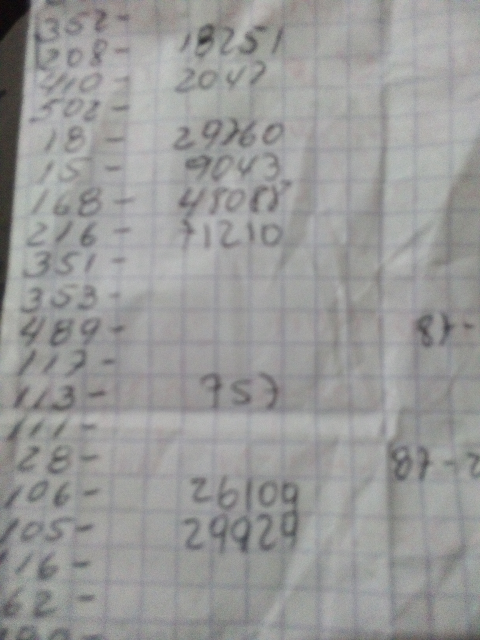 352-
208- 18251
410- 2047
502-
18- 29760
15- 9043
168- 48088
216- 71210
351-
353-
489- 87-
117-
113- 757
111-
28- 87-2
106- 26109
105- 29929
116-
62-